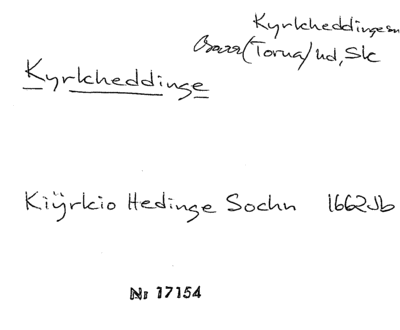 Kyrkheddinge sn
Bara (Torna) hd, Sk
Kyrkheddinge
Kiÿrkio Hedinge Sochn 1662 Jb
Nr 17154